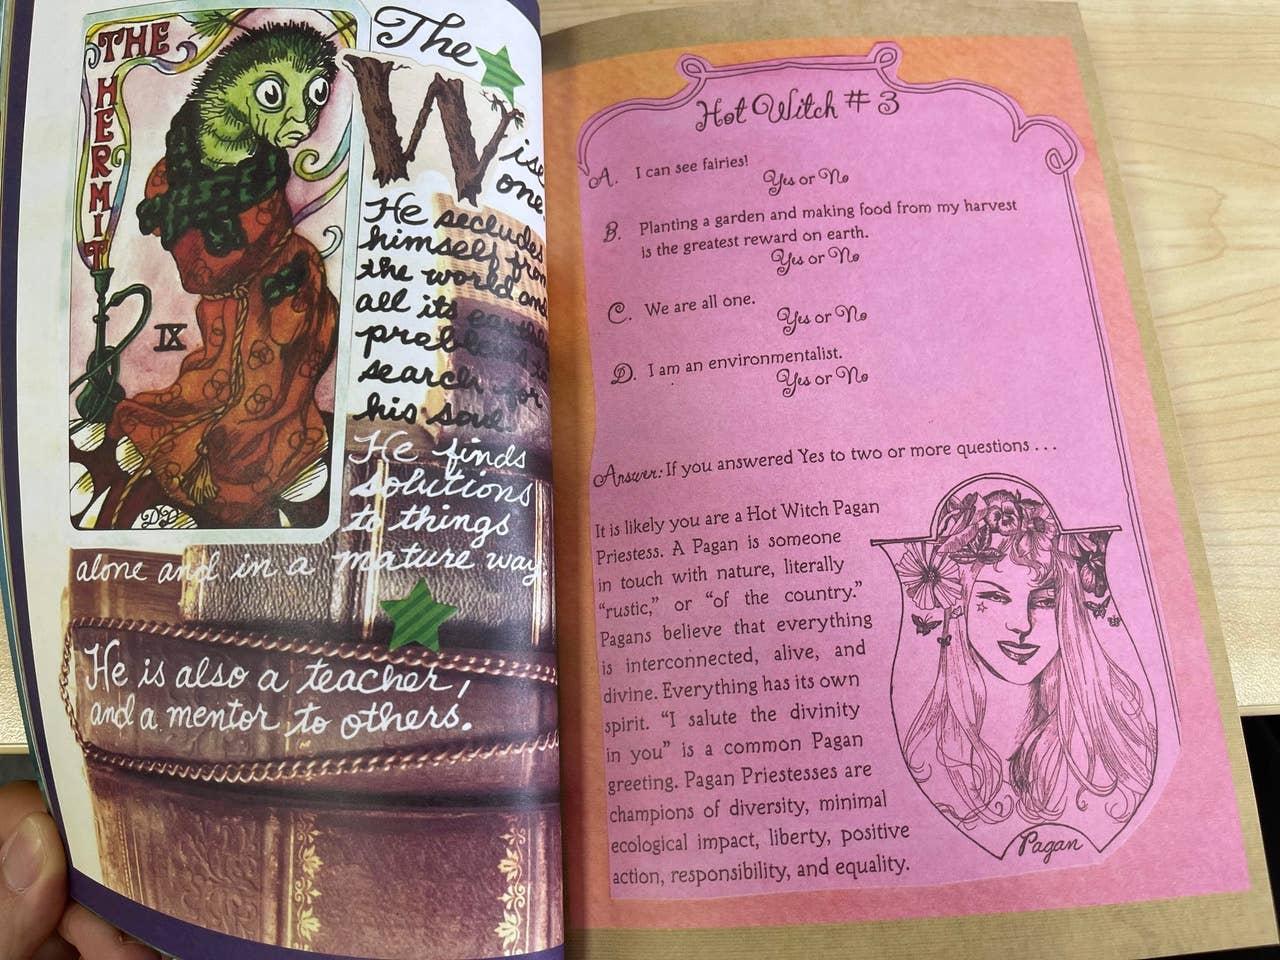 THE
HERMIT
IX
The
Wise
one.
He secludes
himself from
the world and
all its
problems to
search for
his soul.
He finds
solutions
to things
alone and in a mature way.
He is also a teacher,
and a mentor to others.
Hot Witch # 3
A. I can see fairies!
Yes or No
B. Planting a garden and making food from my harvest
is the greatest reward on earth.
Yes or No
C. We are all one.
Yes or No
D. I am an environmentalist.
Yes or No
Answer: If you answered Yes to two or more questions . . .
It is likely you are a Hot Witch Pagan
Priestess. A Pagan is someone
in touch with nature, literally
“rustic,” or “of the country.”
Pagans believe that everything
is interconnected, alive, and
divine. Everything has its own
spirit. “I salute the divinity
in you” is a common Pagan
greeting. Pagan Priestesses are
champions of diversity, minimal
ecological impact, liberty, positive
action, responsibility, and equality.
Pagan